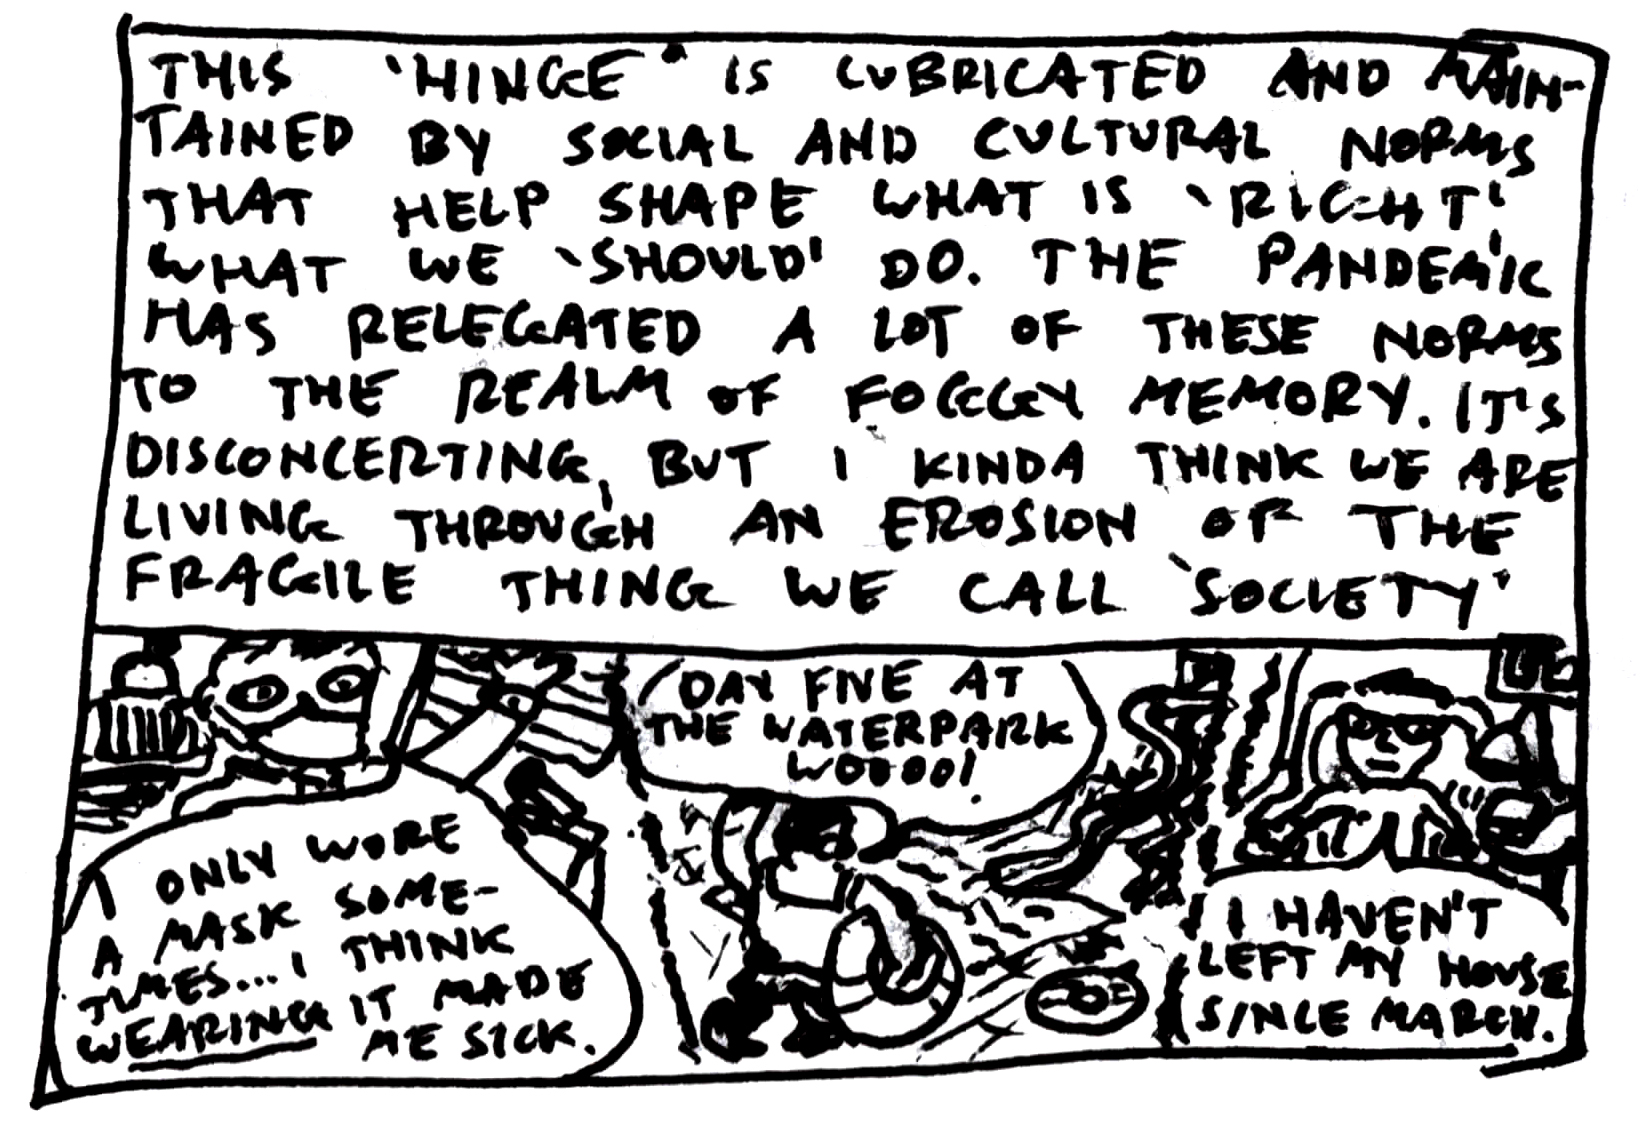 THIS 'HINGE" IS LUBRICATED AND MAIN-
TAINED BY SOCIAL AND CULTURAL NORMS
THAT HELP SHAPE WHAT IS 'RIGHT',
WHAT WE 'SHOULD' DO. THE PANDEMIC
HAS RELEGATED A LOT OF THESE NORMS
TO THE REALM OF FOGGY MEMORY. IT'S
DISCONCERTING, BUT I KINDA THINK WE ARE
LIVING THROUGH AN EROSION OF THE
FRAGILE THING WE CALL 'SOCIETY'
I ONLY WORE
A MASK SOME-
TIMES... I THINK
WEARING IT MADE
ME SICK.
DAY FIVE AT
THE WATERPARK
WOOOO!
I HAVEN'T
LEFT MY HOUSE
SINCE MARCH.